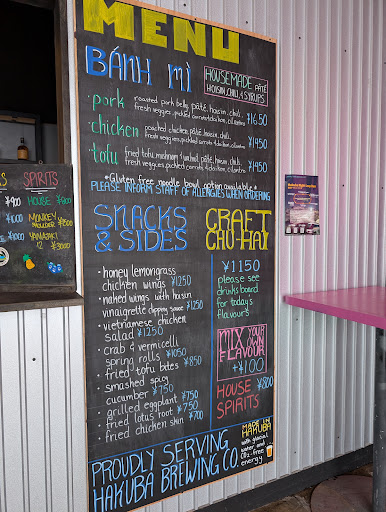 MENU
BÁNH MÌ
HOUSEMADE PÂTÉ
HOISIN, CHILI, &
SYRUPS
• pork roasted pork belly, pâté, hoisin, chili,
fresh veggies, pickled carrot & daikon, cilantro ¥1650
• chicken poached chicken, pâté, hoisin, chili,
fresh veggies, pickled carrot & daikon, cilantro ¥1450
• tofu fried tofu, mushroom & walnut pâté, hoisin, chili,
fresh veggies, pickled carrot & daikon, cilantro ¥1450
*Gluten free noodle bowl option available*
PLEASE INFORM STAFF OF ALLERGIES WHEN ORDERING
SNACKS
& SIDES
• honey lemongrass
chicken wings ¥1250
• naked wings with hoisin
vinaigrette dipping sauce ¥1250
• vietnamese chicken
salad ¥1250
• crab & vermicelli
spring rolls ¥1050
• fried tofu bites ¥850
• smashed spicy
cucumber ¥750
• grilled eggplant ¥750
• fried lotus root ¥750
• fried chicken skin ¥700
CRAFT
CHU-HAI
¥1150
please see
drinks board
for today's
flavours
MIX YOUR
OWN
FLAVOUR
+¥100
HOUSE ¥800
SPIRITS
PROUDLY SERVING
HAKUBA BREWING CO.
MADE IN
HAKUBA
with glacial
water and
CO2-free
energy
SPIRITS
¥900 HOUSE ¥800
MONKEY
SHOULDER
YAMAZAKI
12
¥1000